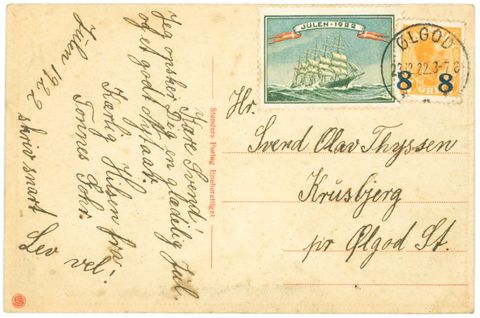 Julen 1922
Kære Svend!
Jeg ønsker Dig en glædelig Jul.
og et godt Nytaar.
Kærlig Hilsen fra
Tonnes Fohr.
skriv snart
Lev vel!
Stenders Forlag Eneberettiget
JULEN - 1922
ØLGOD
23.12.22.3-7 E
8 8
ØRE
Hr.
Svend Olav Thyssen
Krusbjerg
pr Ølgod St.
S